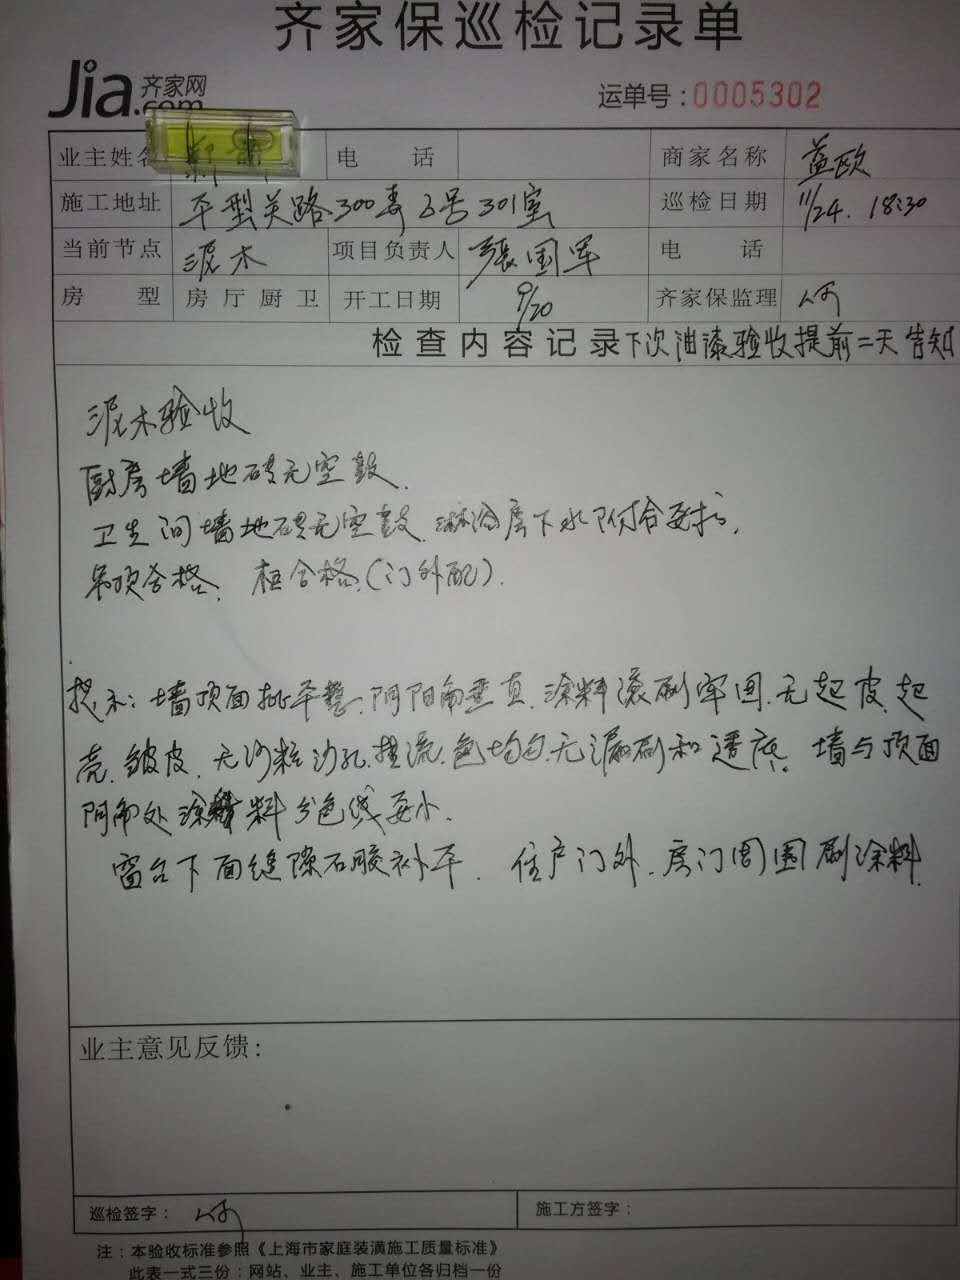 齐家保巡检记录单
Jia.com 齐家网
运单号:0005302
业主姓名 电 话 商家名称 益欧
施工地址 平型关路300弄3号301室 巡检日期 11/24. 18:30
当前节点 泥木 项目负责人 張国军 电 话
房 型 房 厅 厨 卫 开工日期 9/20 齐家保监理
检查内容记录 下次油漆验收提前二天告知
泥木验收
厨房墙地砖无空鼓.
卫生间墙地砖无空鼓.淋浴房下水附合要求.
吊顶合格. 柜合格.(门外配).
提示:墙顶面批平整.阴阳角垂直.涂料滚刷牢固.无起皮.起
壳.皱皮.无沙粒沙孔.挂流.色均匀.无漏刷和透底. 墙与顶面
阴角处涂料分色线要小.
窗台下面缝隙石胶补平. 住户门外.房门周围刷涂料.
业主意见反馈:
巡检签字: 施工方签字:
注:本验收标准参照《上海市家庭装潢施工质量标准》
此表一式三份:网站、业主、施工单位各归档一份